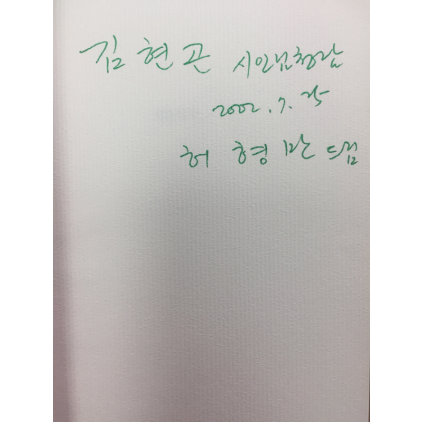 김현곤 시인님청람
2002. 7. 25
허형만 드림